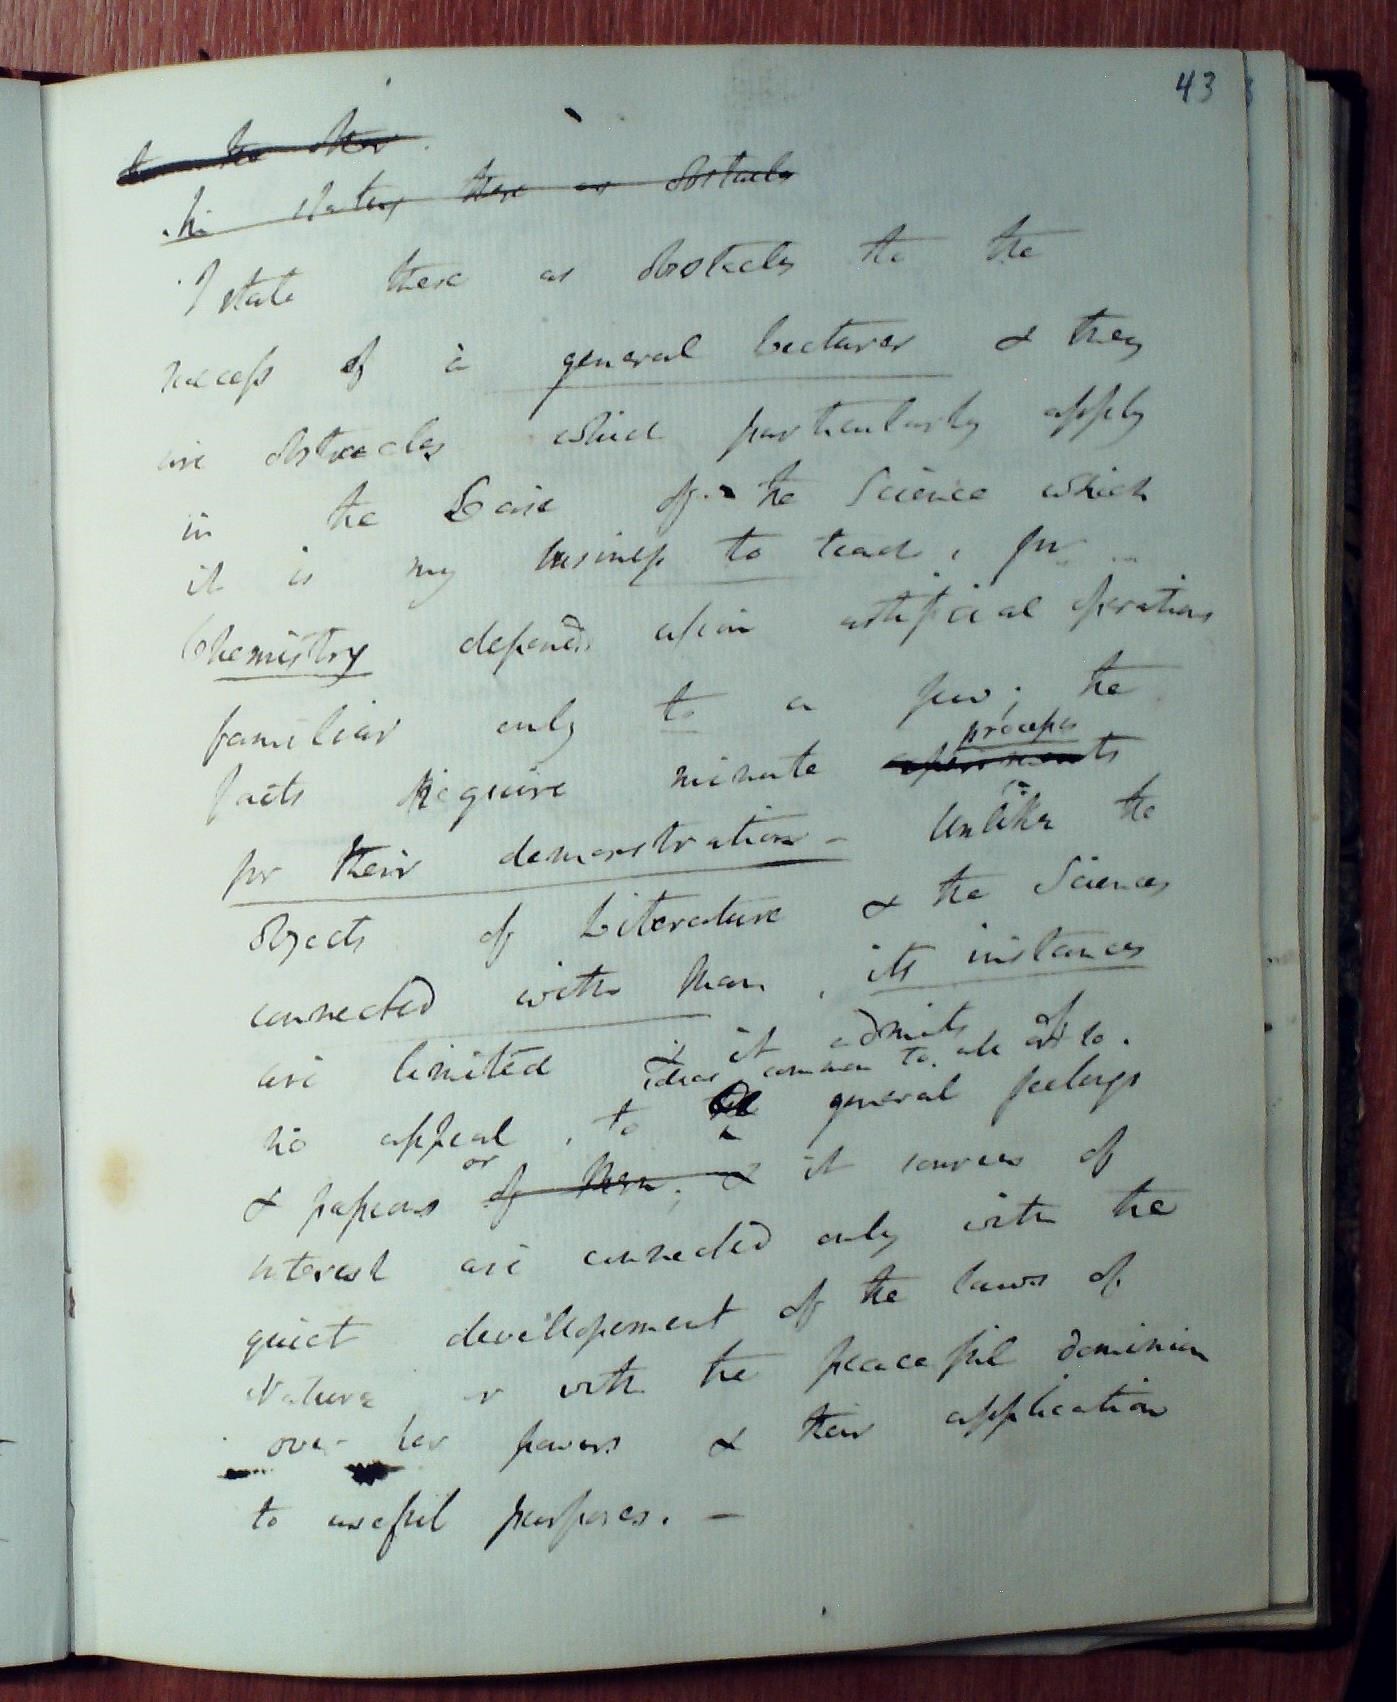 43
to the other.
In stating these as obstacles
I state these as obstacles to the
success of a general Lecturer & they
are obstacles which particularly apply
in the Case of the Science which
it is my business to teach, for
Chemistry depends upon artificial operations
familiar only to a few; the
processes
facts require minute experiments
for their demonstration – Unlike the
Objects of Literature & the Sciences
connected with Man, its instances
are limited & it admits of
ideas common to all or to
no appeal, to the general feelings
or
& passions of Men; & it sources of
interest are connected only with the
quiet developement of the laws of
Nature or with the peaceful dominion
over her powers & their application
to useful purposes. –